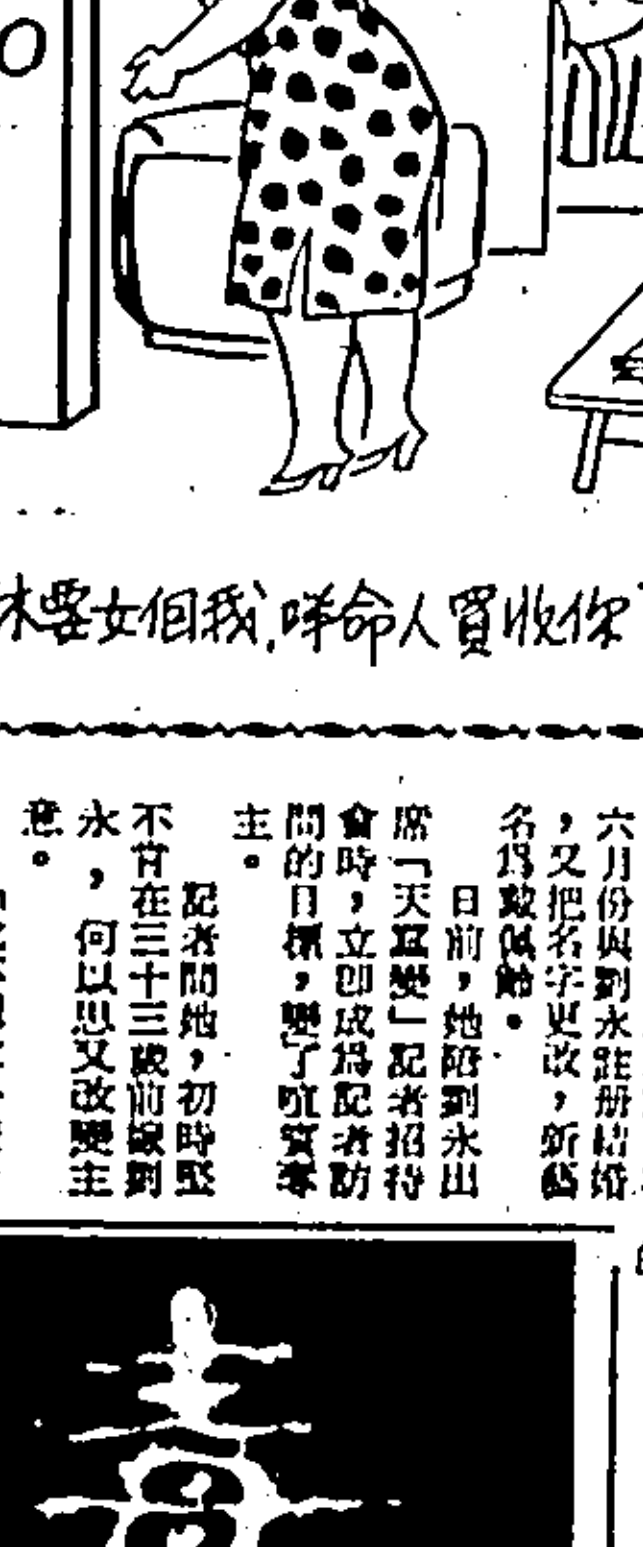 你收買人命咩,我個女要
六月份與劉永註册結婚
，又把名字更改，新藝
名爲
日前，她陪劉永出
席「天蠶變」記者招待
會時，立即成爲記者訪
問的目標，變了喧賓奪
主。
記者問她，初時堅
不肯在三十三歲前嫁劉
永，何以思又改變主
意。